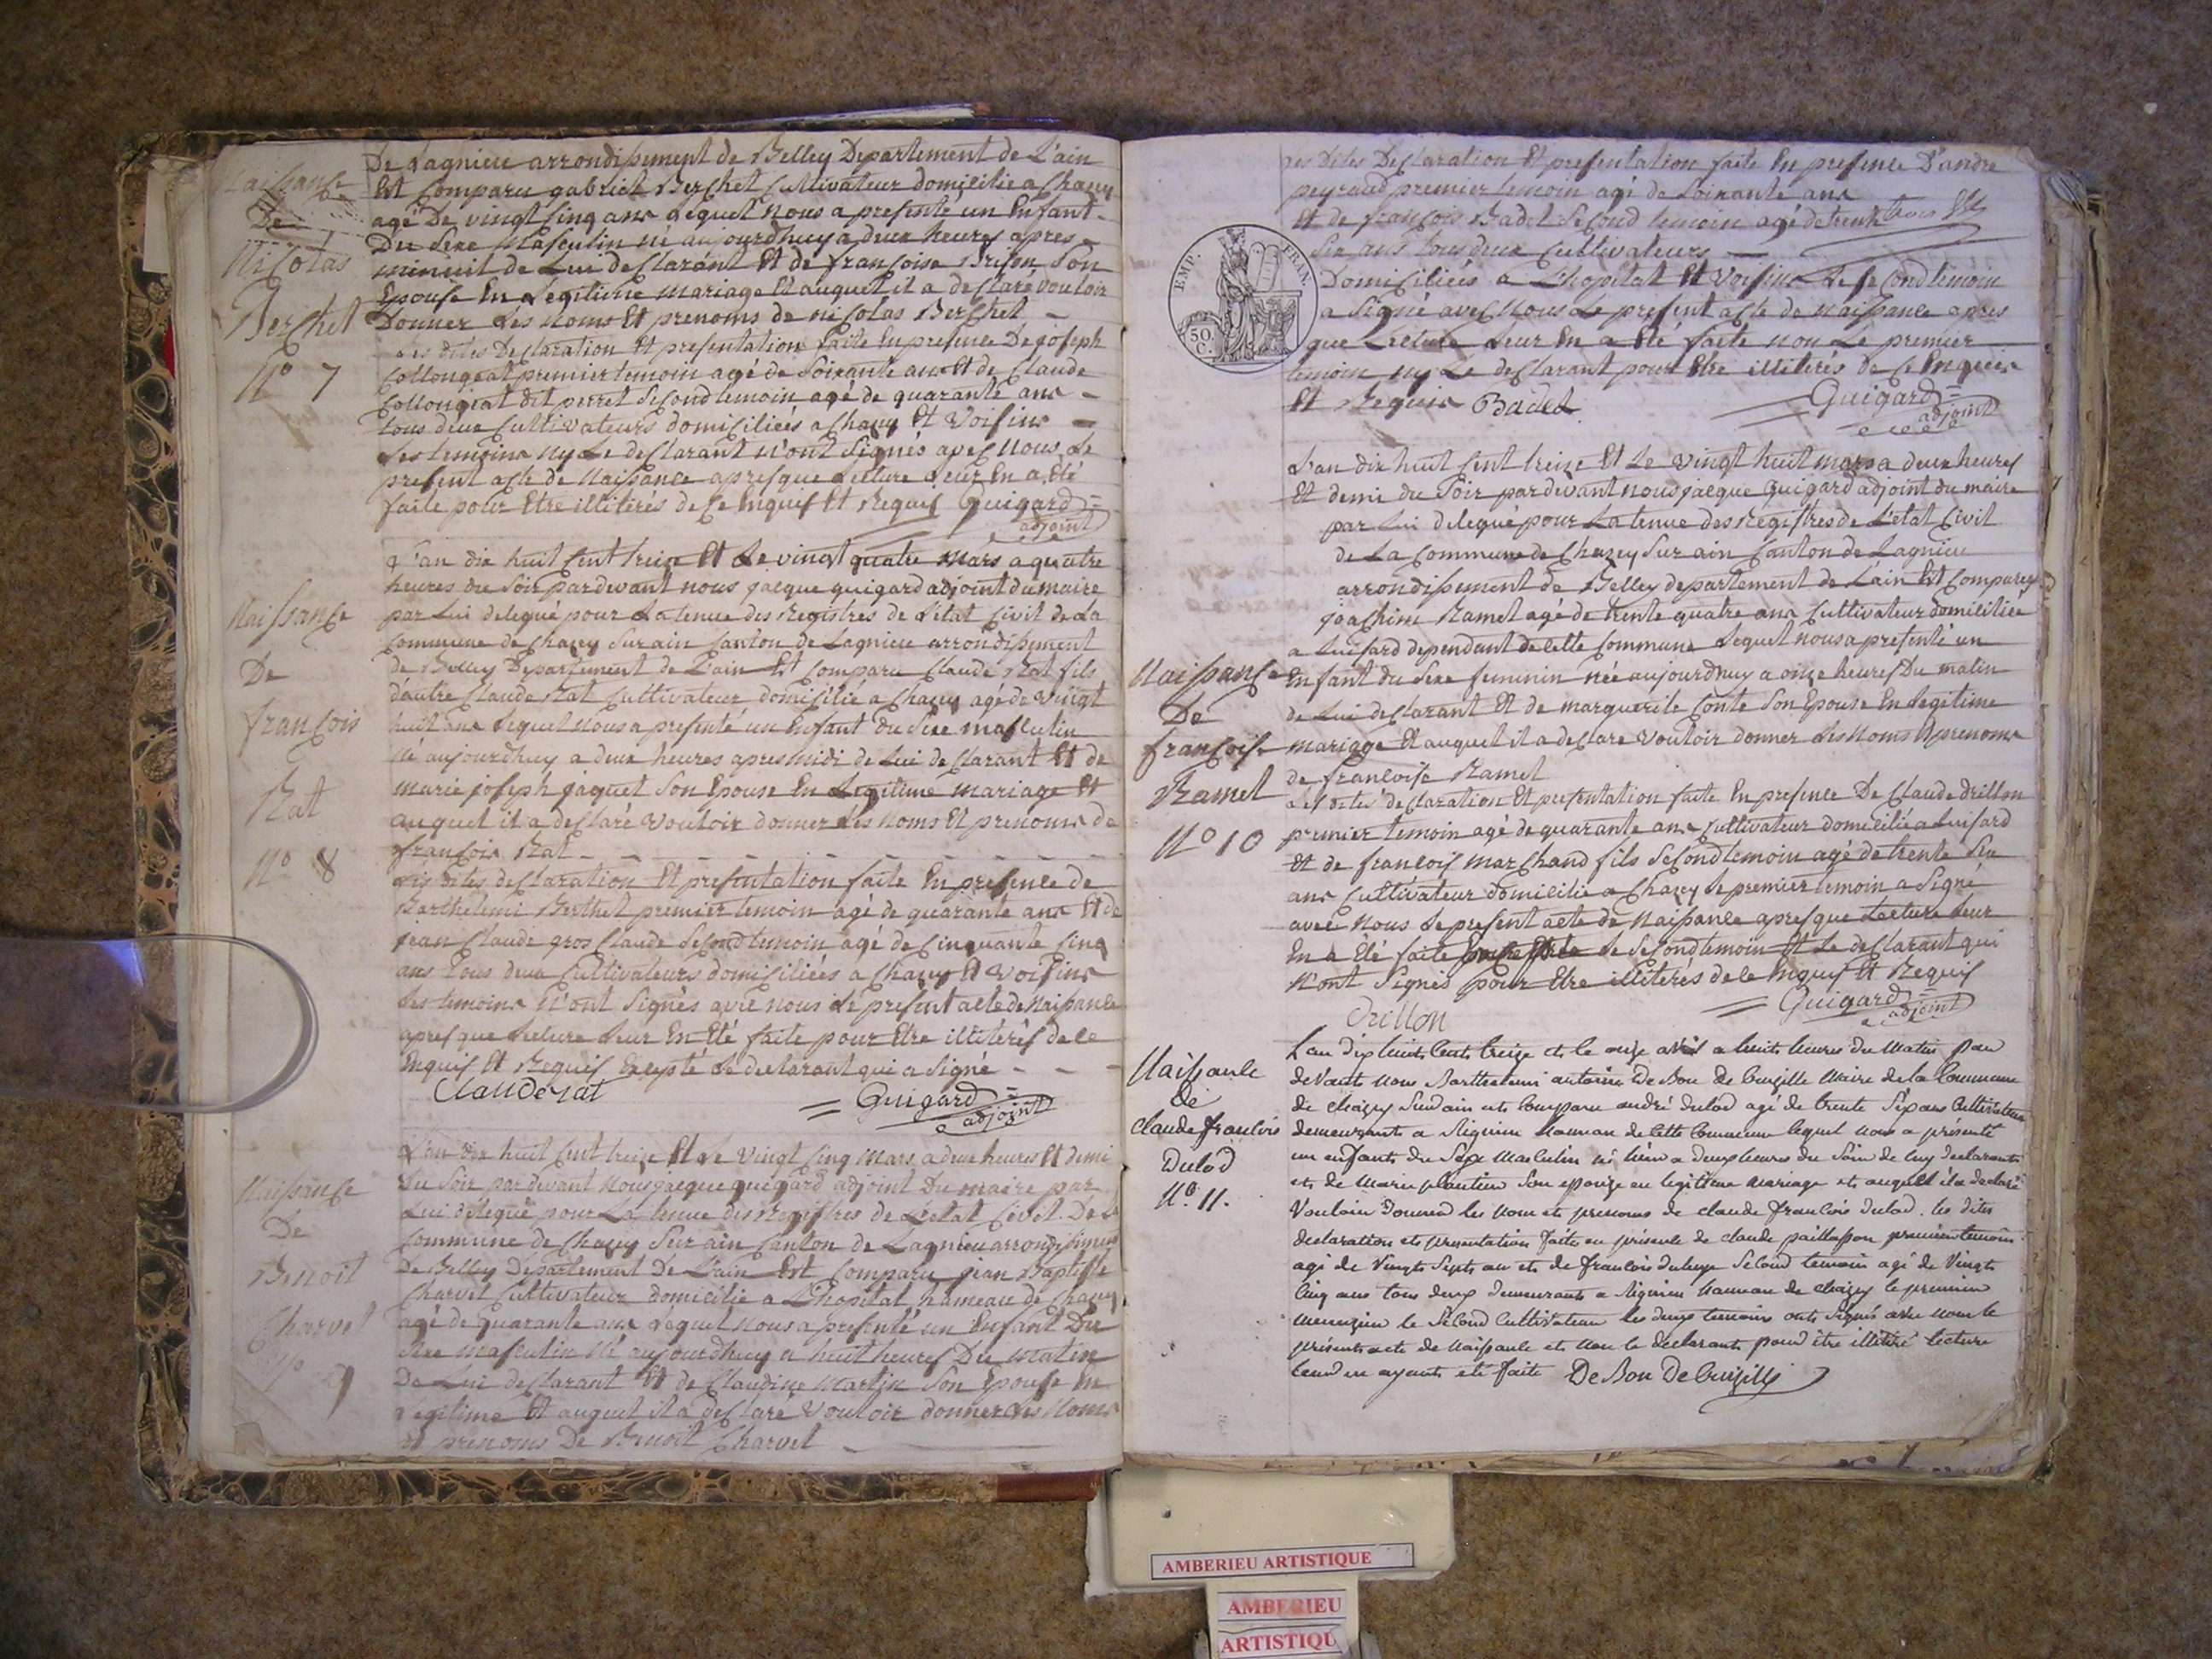 De Lagnieu arrondissement de Belley Departement de L'ain
Est Comparu gabriel Berchet Cultivateur domicilié a Chazey
agé De vingt Cinq ans Lequel Nous a presenté un Enfant
Du Sexe Masculin né aujourdhuy a deux heures apres
minuit de Lui declarant Et de francoise Brison Son
Epouse En Legitime mariage Et auquel il a declaré vouloir
Donner Les Noms Et prenoms de nicolas Berchet
Les dites Declaration Et presentation faite En presence De joseph
Collongeat premier temoin agé de Soixante ans Et de Claude
Collongeat dit perret Second temoin agé de quarante ans
tous deux Cultivateurs domiciliés a Chazey Et Voisins
Les temoins ny Le declarant n'ont Signés avec Nous Le
present acte de Naissance apres que Lecture Leur En a Eté
faite pour Etre illiterés de Ce Enquis Et Requis Guigard
adjoint
Naissance
De
Nicolas
Berchet
N° 7
L'an dix huit Cent treize Et Le vingt quatre Mars a quatre
heures du Soir pardevant nous jacque guigard adjoint du maire
par Lui delegué pour La tenue des Registres de L'etat Civil de La
Commune de Chazey Sur ain Canton de Lagnieu arrondissement
de Belley Departement de L'ain Est Comparu Claude Rat fils
d'autre Claude Rat Cultivateur domicilié a Chazey agé de Vingt
huit ans Lequel Nous a presenté un Enfant du Sexe masculin
né aujourdhuy a deux heures apres midi de Lui declarant Et de
marie joseph jaquet Son Epouse En Legitime mariage Et
auquel il a declaré Vouloir donner Les Noms Et prenoms de
francois Rat
Les dites declaration Et presentation faite En presence de
Barthelemi Berthet premier temoin agé de quarante ans Et de
jean Claude gros Claude Second temoin agé de Cinquante Cinq
ans tous deux Cultivateurs domiciliés a Chazey Et Voisins
Les temoins N'ont Signés avec nous Le present acte de Naissance
apres que Lecture Leur En Eté faite pour Etre illiterés de Ce
Enquis Et Requis Excepté Le declarant qui a Signé
Claude rat Guigard
adjoint
Naissance
De
francois
Rat
N° 8
L'an dix huit Cent treize Et Le Vingt Cinq Mars a deux heures Et demi
Du Soir par devant Nous jacque guigard adjoint Du maire par
Lui delegué pour La tenue des Registres de L'etat Civil De La
Commune de Chazey Sur ain Canton de Lagnieu arrondissement
De Belley departement De L'ain Est Comparu jean Baptiste
Charvet Cultivateur domicilié a L'hopital hameau de Chazey
agé de quarante ans Lequel Nous a presenté un Enfant Du
Sexe masculin Né aujourdhuy a huit heures Du matin
De Lui declarant Et de Claudine Martin Son Epouse En
Legitime Et auquel il a declaré Vouloir donner Les Noms
et prenoms De Benoit Charvet
Naissance
De
Benoit
Charvet
N° 9
Les Dites Declaration Et presentation faite En presence D'andre
peyraud premier temoin agé de Soixante ans
Et de francois Badet Second temoin agé de trente
Six ans tous deux Cultivateurs
Domiciliés a L'hopital Et Voisins Le Second temoin
a Signé avec Nous Le present acte de Naissance apres
que Lecture Leur En a Eté faite non Le premier
temoin ny Le declarant pour Etre illiterés de Ce Enquis
Et Requis Badet Guigard
adjoint
EMP. FRAN.
50 C.
L'an dix huit Cent treize Et Le Vingt huit mars a deux heures
Et demi du Soir par devant nous jacque Guigard adjoint du maire
par Lui delegué pour La tenue des Registres de L'etat Civil
de La Commune de Chazey Sur ain Canton de Lagnieu
arrondissement de Belley departement de L'ain Est Comparu
joachim Ramel agé de trente quatre ans Cultivateur domicilié
a Luisard dependant de Cette Commune Lequel nous a presenté un
Enfant du Sexe feminin née aujourdhuy a onze heures Du matin
de Lui declarant Et de marguerite Conte Son Epouse En Legitime
mariage Et auquel il a declare Vouloir donner Les Noms Et prenoms
de francoise Ramel
Les dites declaration Et presentation faite En presence De Claude drillon
premier temoin agé de quarante ans Cultivateur domicilié a Luisard
Et de francois marchand fils Second temoin agé de trente Six
ans Cultivateur domicilié a Chazey Le premier temoin a Signé
avec Nous Le present acte de Naissance apres que Lecture Leur
En a Eté faite Le Second temoin Et Le declarant qui
N'ont Signés pour Etre illiterés de Ce Enquis Et Requis
Drillon Guigard
adjoint
Naissance
De
francoise
Ramel
N° 10
L'an dix huit cent treize et le onze avril a huit heures du Matin par
devant Nous Barthelemi antoine De Bon De Cuzille Maire de la Commune
de Chazey Sur ain est Comparu andré dulod agé de trente Six ans Cultivateur
demeurant a Rignieu hameau de cette Commune lequel nous a présenté
un enfant du Sexe Masculin né hier a deux heures du Soir de luy declarant
et de Marie plantier Son epouze en legitime Mariage et auquel il a declaré
Vouloir donner les Nom et prenoms de Claude francois dulod. les dites
declaration et presentation faite en présence de Claude paillasson premier temoin
agé de Vingt Sept an et de francois dulod Second temoin agé de Vingt
Cinq ans tous deux demeurants a Rignieu hameau de Chazey le premier
le Second Cultivateur les deux temoins ont Signés avec Nous le
présent acte de Naissance et Non le declarant pour être illitéré lecture
leur en ayant été faite De Bon De Cuzille
Naissance
de
Claude francois
Dulod
N° 11.
AMBERIEU ARTISTIQUE
AMBERIEU
ARTISTIQU